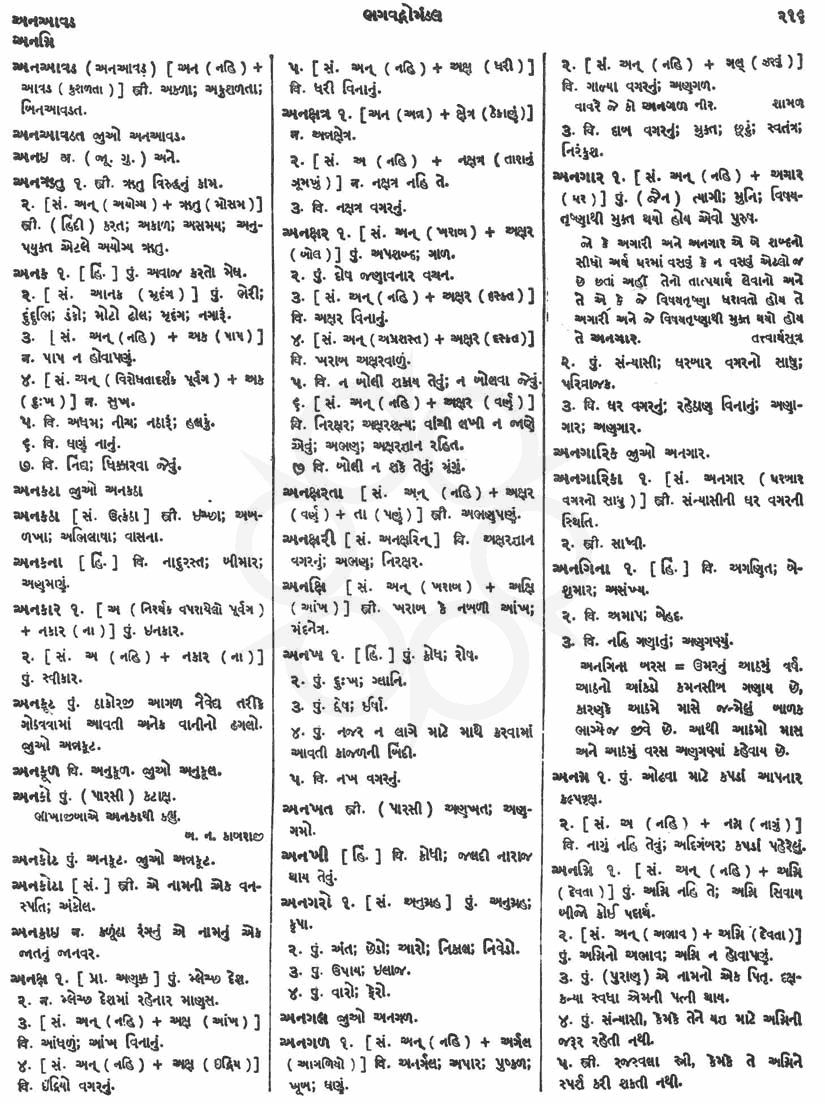 અનઆવડ
અનગ્નિ
ભગવદ્ગોમંડલ
૨૧૬
અનઆવડ (અનઆવડ) [ અન (નહિ) +
આવડ (કુશળતા) ] સ્ત્રી. અકળા; અકુશળતા;
બિનઆવડત.
અનઆવડત જુઓ અનઆવડ.
અનઇ અ. (જૂ. ગુ.) અને.
અનઋતુ ૧. સ્ત્રી. ઋતુ વિરુદ્ધનું કામ.
૨. [ સં. અન્ (અયોગ્ય) + ઋતુ (મોસમ) ]
સ્ત્રી. (હિંદી) કરત; અકાળ; અસમય; અનુ-
પયુક્ત એટલે અયોગ્ય ઋતુ.
અનક ૧. [ હિં. ] પું. અવાજ કરતો મેઘ.
૨. [ સં. આનક (મૃદંગ) ] પું. ભેરી;
દુંદુભિ; ડંકો; મોટો ઢોલ; મૃદંગ; નગારૂં.
૩. [ સં. અન્ (નહિ) + અક (પાપ) ]
ન. પાપ ન હોવાપણું.
૪. [ સં. અન્ (વિરોધતાદર્શક પૂર્વગ) + અક
(દુઃખ) ] ન. સુખ.
૫. વિ. અધમ; નીચ; નઠારૂં; હલકું.
૬. વિ. ઘણું નાનું.
૭. વિ. નિંદ્ય; ધિક્કારવા જેવું.
અનકટા જુઓ અનકઠા
અનકઠા [ સં. ઉત્કંઠા ] સ્ત્રી. ઇચ્છા; અબ-
ળખા; અભિલાષા; વાસના.
અનકના [ હિં. ] વિ. નાદુરસ્ત; બીમાર;
અણુમાણું.
અનકાર ૧. [ અ (નિરર્થક વપરાયેલો પૂર્વગ)
+ નકાર (ના) ] પું. ઇનકાર.
૨. [ સં. અ (નહિ) + નકાર (ના) ]
પું. સ્વીકાર.
અનકૂટ પું. ઠાકોરજી આગળ નૈવેદ્ય તરીકે
ગોઠવવામાં આવતી અનેક વાનીનો ઢગલો.
જુઓ અન્નકૂટ.
અનકૂળ વિ. અનુકૂળ. જુઓ અનુકૂલ.
અનકો પું. (પારસી) કટાક્ષ.
ભીખાજીખાએ અનકાથી કહ્યું.
ખ. ન. કાબરાજી
અનકોટ પું. અનકૂટ. જુઓ અન્નકૂટ.
અનકોટા [ સં. ] સ્ત્રી. એ નામની એક વન-
સ્પતિ; અંકોલ.
અનક્રાઇ ન. કળૂંઠા રંગનું એ નામનું એક
જાતનું જાનવર.
અનક્ષ ૧. [ પ્રા. અણુક્ક ] પું. મ્લેચ્છ દેશ.
૨. ન. મ્લેચ્છ દેશમાં રહેનાર માણુસ.
૩. [ સં. અન્ (નહિ) + અક્ષ (આંખ) ]
વિ. આંધળું; આંખ વિનાનું.
૪. [ સં. અન્ (નહિ) + અક્ષ (ઇંદ્રિય) ]
વિ. ઇંદ્રિયો વગરનું.
૫. [ સં. અન્ (નહિ) + અક્ષ (ધરી) ]
વિ. ધરી વિનાનું.
અનક્ષત્ર ૧. [ અન (અન્ન) + ક્ષેત્ર (ઠેકાણું) ]
ન. અન્નક્ષેત્ર.
૨. [ સં. અ (નહિ) + નક્ષત્ર (તારાનું
ઝૂમખું) ] ન. નક્ષત્ર નહિ તે.
૩. વિ. નક્ષત્ર વગરનું.
અનક્ષર ૧. [ સં. અન્ (ખરાબ) + અક્ષર
(બોલ) ] પું. અપશબ્દ; ગાળ.
૨. પું. દોષ જણાવનાર વચન.
૩. [ સં. અન્ (નહિ) + અક્ષર (હરફ) ]
વિ. અક્ષર વિનાનું.
૪. [ સં. અન્ (અપ્રશસ્ત) + અક્ષર (દસ્કત) ]
વિ. ખરાબ અક્ષરવાળું.
૫. વિ. ન બોલી શકાય તેવું; ન બોલવા જેવું.
૬. [ સં. અન્ (નહિ) + અક્ષર (વર્ણ) ]
વિ. નિરક્ષર; અક્ષરશત્ય; વાંચી લખી ન જાણે
એવું; અભણુ; અક્ષરજ્ઞાન રહિત.
૭ વિ. બોલી ન શકે તેવું; મૂંગું.
અનક્ષરતા [ સં. અન્ (નહિ) + અક્ષર
(વર્ણ) + તા (પણું) ] સ્ત્રી. અભણપણું.
અનક્ષરી [ સં. અનક્ષરિન્ ] વિ. અક્ષરજ્ઞાન
વગરનું; અભણુ; નિરક્ષર.
અનક્ષિ [ સં. અન્ (ખરાબ) + અક્ષિ
(આંખ) ] સ્ત્રી. ખરાબ કે નબળી આંખ;
મંદનેત્ર.
અનખ ૧. [ હિં. ] પું. ક્રોધ; રોષ.
૨. પું. દુઃખ; ગ્લાનિ.
૩. પું. દ્વેષ; ઈર્ષા.
૪. પું. નજર ન લાગે માટે માથે કરવામાં
આવતી કાજળની બિંદી.
૫. વિ. નખ વગરનું.
અનખત સ્ત્રી. (પારસી) અણુખત; અણુ-
ગમો.
અનખી [ હિં. ] વિ. ક્રોધી; જલદી નારાજ
થાય તેવું.
અનગરો ૧. [ સં. અનુગ્રહ ] પું. અનુગ્રહ;
કૃપા.
૨. પું. અંત; છેડો; આરો; નિકાલ; નિવેડો.
૩. પું. ઉપાય; ઇલાજ.
૪. પું. વારો; ફેરો.
અનગલ જુઓ અનગળ.
અનગળ ૧. [ સં. અન્ (નહિ) + અર્ગલ
(આગળિયો) ] વિ. અનર્ગલ; અપાર; પુષ્કળ;
ખૂબ; ઘણું.
૨. [ સં. અન્ (નહિ) + ગલ્ (ઝરવું) ]
વિ. ગાળ્યા વગરનું; અણુગળ.
વાવરે જે કો અનગળ નીર. શામળ
૩. વિ. દાબ વગરનું; મુક્ત; છૂટું; સ્વતંત્ર;
નિરંકુશ.
અનગાર ૧. [ સં. અન્ (નહિ) + અગાર
(ઘર) ] પું. (જૈન) ત્યાગી; મુનિ; વિષય-
તૃષ્ણાથી મુક્ત થયો હોય એવો પુરુષ.
જે કે અગારી અને અનગાર એ બે શબ્દનો
સીધો અર્થ ઘરમાં વસવું કે ન વસવું એટલોજ
છે છતાં અહીં તેનો તાત્પયાર્થ લેવાનો અને
તે એ કે જે વિષયતૃષ્ણા ધરાવતો હોય તે
અગારી અને જે વિષયતૃષ્ણાથી મુક્ત થયો હોય
તે અનગાર. તત્ત્વાર્થસૂત્ર
૨. પું. સંન્યાસી; ઘરબાર વગરનો સાધુ;
પરિવાજક.
૩. વિ. ઘર વગરનું; રહેઠાણુ વિનાનું; અણા-
ગાર; અણુગાર.
અનગારિક જુઓ અનગાર.
અનગારિકા ૧. [ સં. અનગાર (ઘરબાર
વગરનો સાધુ) ] સ્ત્રી. સંન્યાસીની ઘર વગરની
સ્થિતિ.
૨. સ્ત્રી. સાધ્વી.
અનગિના ૧. [ હિં. ] વિ. અગણિત; બે-
શુમાર; અસંખ્ય.
૨. વિ. અમાપ; બેહદ.
૩. વિ. નહિ ગણાતું; અણુગણ્યું.
અનગિના બરસ = ઉમરનું આઠમું વર્ષ.
આઠનો આંકડો કમનસીબ ગણાય છે,
કારણુકે આઠમે માસે જન્મેલું બાળક
ભાગ્યેજ જીવે છે. આથી આઠમો માસ
અને આઠમું વરસ અણુગણ્યાં કહેવાય છે.
અનગ્ન ૧. પું. ઓઢવા માટે કપડાં આપનાર
કલ્પવૃક્ષ.
૨. [ સં. અ (નહિ) + નગ્ન (નાગું) ]
વિ. નાગું નહિ તેવું; અદિગંબર; કપડાં પહેરેલું.
અનગ્નિ ૧. [ સં. અન્ (નહિ) + અગ્નિ
(દેવતા) ] પું. અગ્નિ નહિ તે; અગ્નિ સિવાય
બીજો કોઈ પદાર્થ.
૨. [ સં. અન્ (અભાવ) + અગ્નિ (દેવતા) ]
પું. અગ્નિનો અભાવ; અગ્નિ ન હોવાપણું.
૩. પું. (પુરાણુ) એ નામનો એક પિતૃ. દક્ષ-
કન્યા સ્વધા એમની પત્ની થાય.
૪. પું. સંન્યાસી, કેમકે તેને યજ્ઞ માટે અગ્નિની
જરૂર રહેતી નથી.
૫. સ્ત્રી. રજસ્વલા સ્ત્રી, કેમકે તે અગ્નિને
સ્પર્શ કરી શકતી નથી.